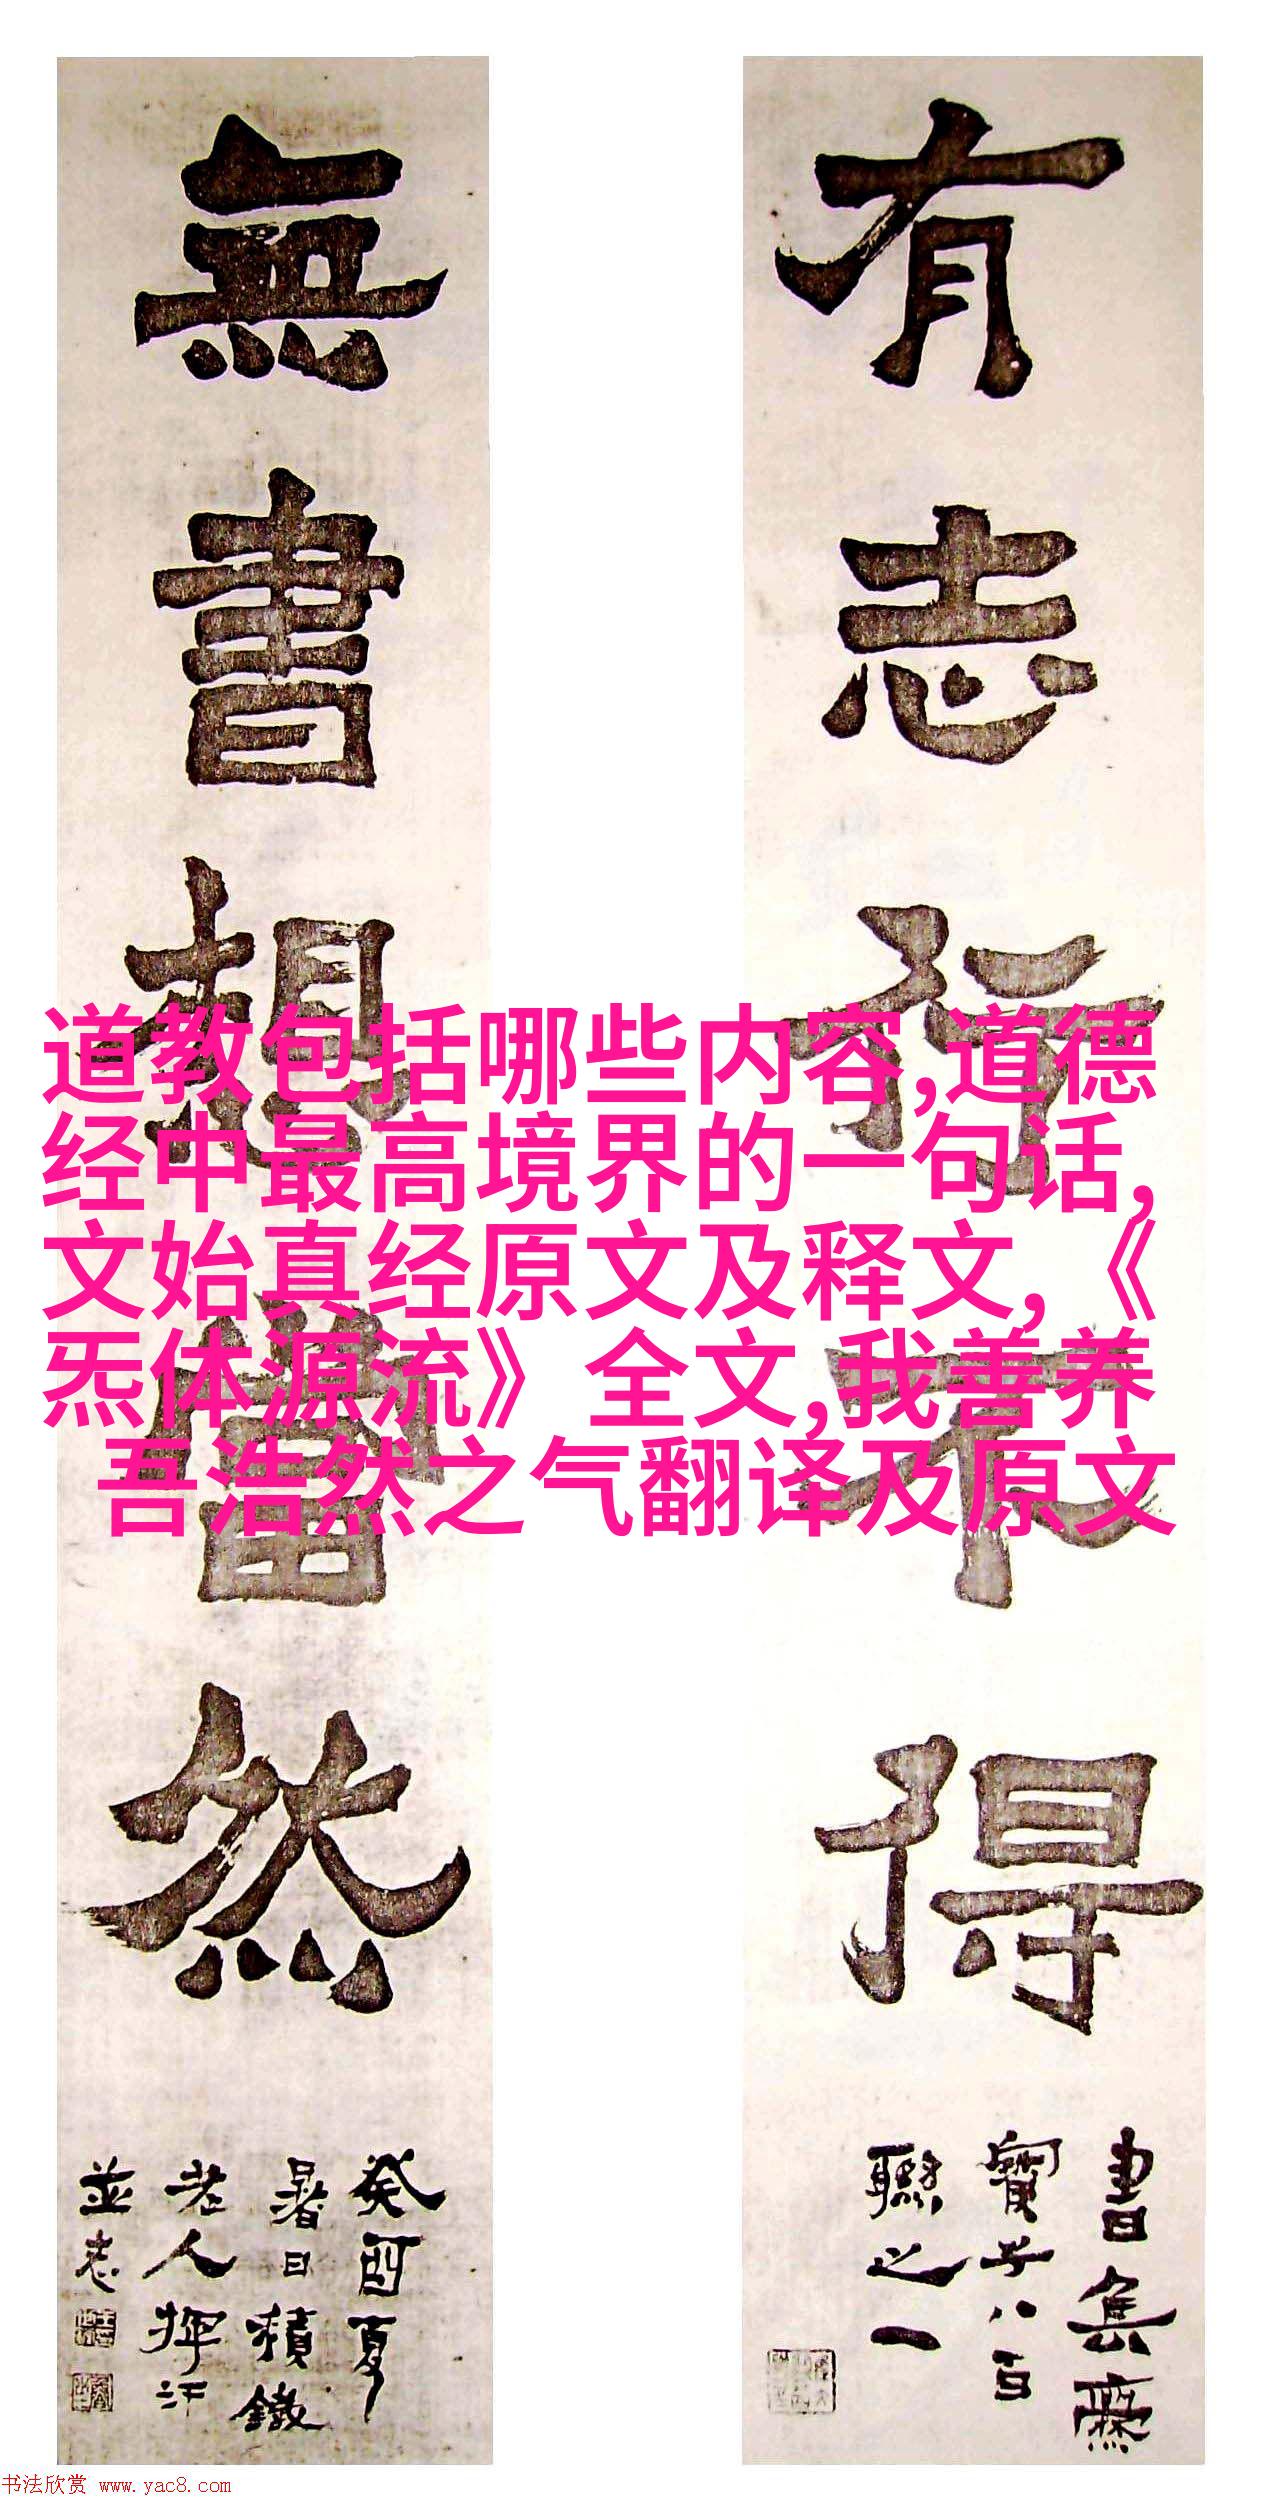 有志行不得
書集爨
寶子八百
聯之一
無書想當然
癸酉夏
暑日積鐵
老人揮汗
並志
道教包括哪些内容,道德
经中最高境界的一句话,
文始真经原文及释文,《
炁体源流》 全文,我善养
吾浩然之气翻译及原文
书法欣赏 www.yac8.com